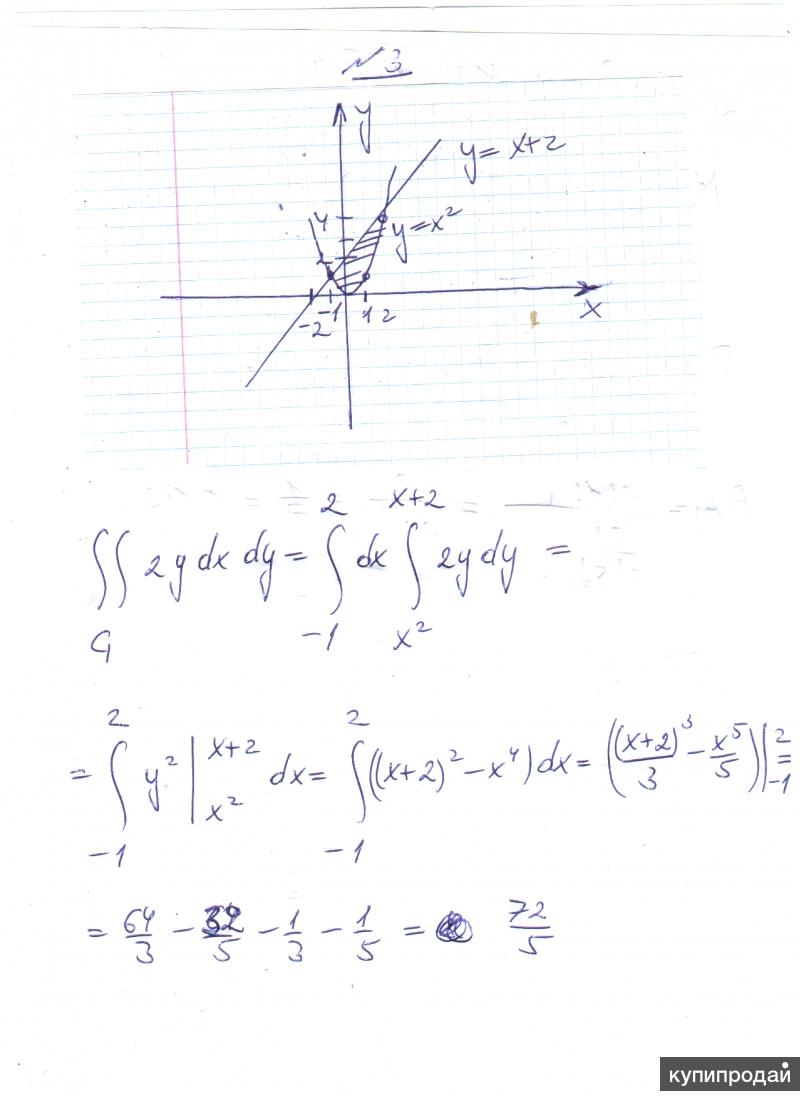 №3
y
y = x+2
4
y=x²
2
-2 -1 1 2 x
∬_G 2y dx dy = ∫_{-1}^{2} dx ∫_{x²}^{x+2} 2y dy =
= ∫_{-1}^{2} y² |_{x²}^{x+2} dx = ∫_{-1}^{2} ((x+2)² - x⁴) dx = ((x+2)³/3 - x⁵/5) |_{-1}^{2} =
= 64/3 - 32/5 - 1/3 - 1/5 = 72/5
купипродай